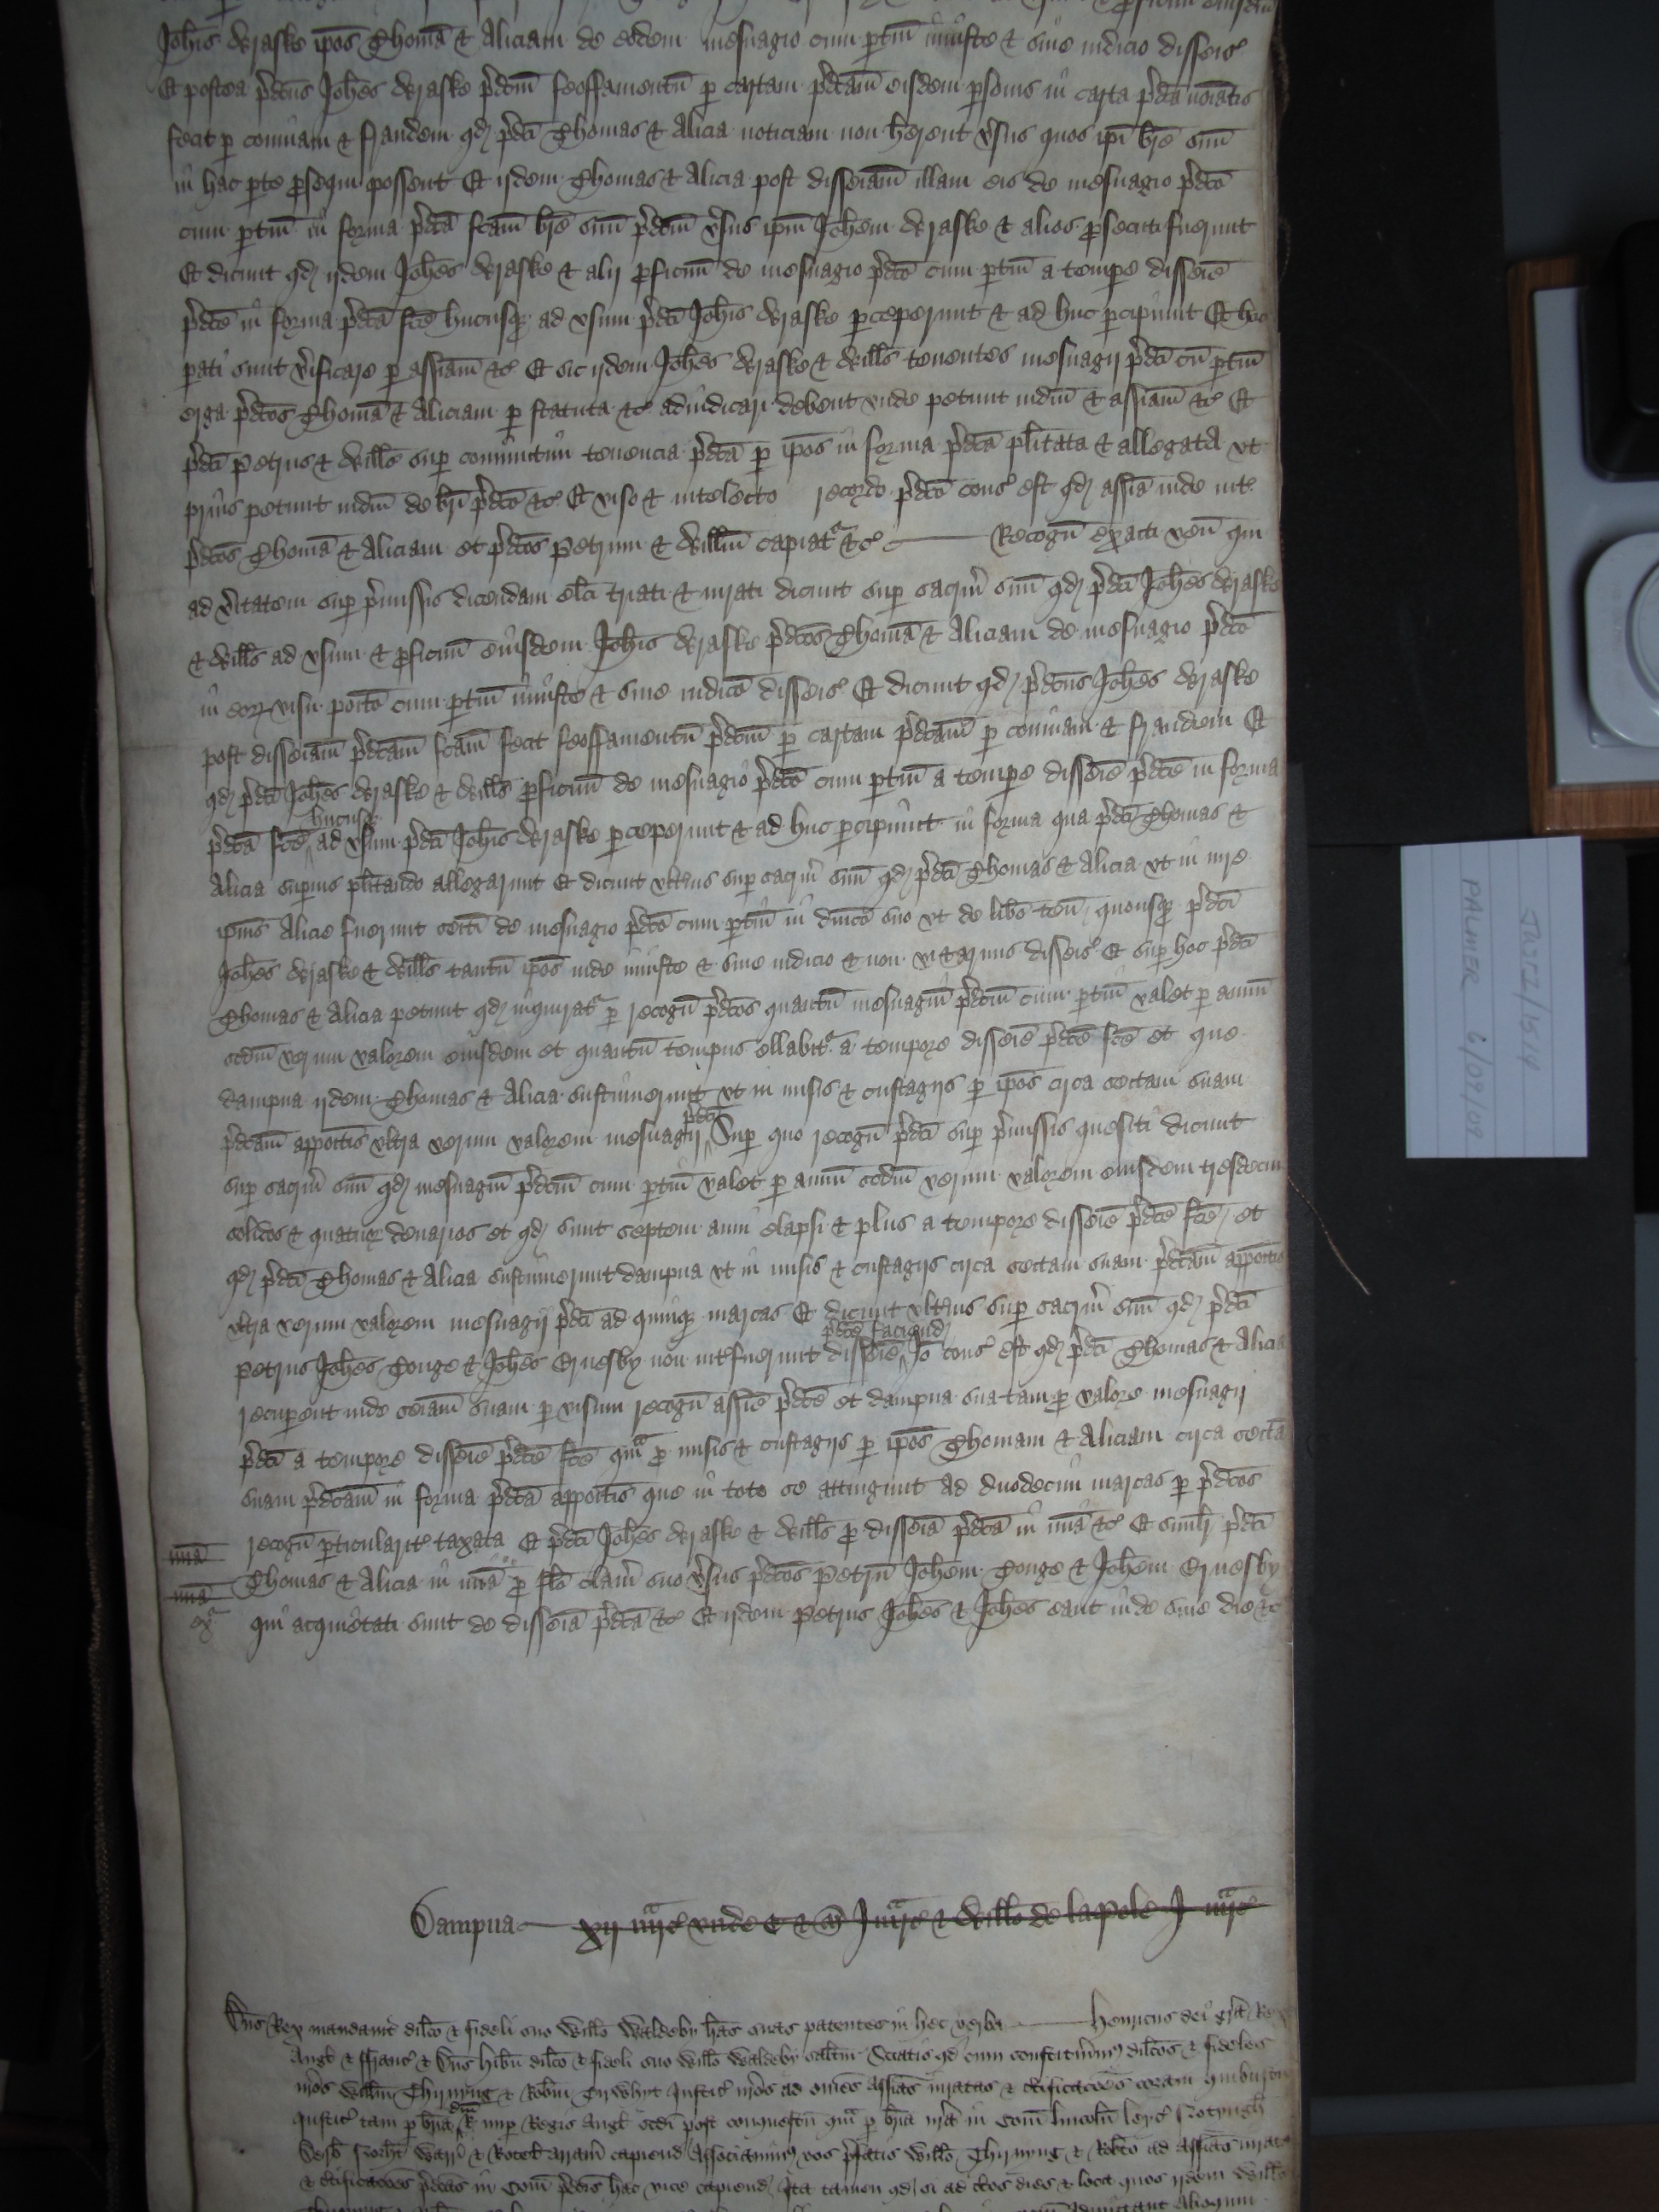 Joħes Wraske ip̄os Thomā & Aliciam de eodem mesuagio cum ptiñ iniuste & sine iudicio disseis'
Et postea p̄dcūs Joħes Wraske p̄dcm̄ feoffamentū p cartam p̄dcām eisdem psonis in carta p̄dcā noīatis
fecit p couinam & fraudem qd p̄dci Thomas & Alicia noticiam non ħerent vsus quos ipi bre suū
in hac pte psequi possent Et ijdem Thomas & Alicia post disseiām illam eis de mesuagio p̄dco
cum ptiñ in forma p̄dcā fcām bre suū p̄dcm̄ vsus ipm̄ Joħem Wraske & alios psecuti fuerunt
Et dicunt qd ijdem Joħes Wraske & alij pficuū de mesuagio p̄dco cum ptiñ a tempe disseiē
p̄dce in forma p̄dcā fce hucusq ad vsum p̄dci Joħis Wraske pceperunt & ad huc pcipiunt Et hoc
pati sunt vificare p assiām &c' Et sic ijdem Joħes Wraske & Wills tenentes mesuagij p̄dci cū ptiñ
erga p̄dcos Thomā & Aliciam p statuta &c' adiudicari debent vnde petunt iudm̄ & assiām &c' Et
p̄dci Petrus & Wills sup coniunctim tenencia p̄dcā p ip̄os in forma p̄dcā plitata & allegata vt
prius petunt iudm̄ de bri p̄dco &c' Et viso & intelecto recordo p̄dco cons' est qd assia inde int'
p̄dcos Thomā & Aliciam et p̄dcos Petrum & Willm̄ capiat' &c' Recogñ exacti veñ qui
ad vitatem sup p̄missis dicendam elci triati & iurati dicunt sup sacrm̄ suū qd p̄dci Joħes Wraske
& Wills ad vsum & pficuū eiusdem Joħis Wraske p̄dcos Thomā & Aliciam de mesuagio p̄dco
in eoꝝ visu poīto cum ptiñ iniuste & sine iudico disseis' Et dicunt qd p̄dcūs Joħes Wraske
post disseiām p̄dcām fcām fecit feoffamentū p̄dcm̄ p cartam p̄dcām p couinam & fraudem Et
qd p̄dci Joħes Wraske & Wills pficuū de mesuagio p̄dco cum ptiñ a tempe disseiē p̄dce in forma
hucusq
p̄dcā fce ad vsum p̄dci Joħis Wraske pceperunt & ad huc pcipiunt in forma qua p̄dci Thomas &
Alicia supius plitando allegarunt Et dicunt vltius sup sacrm̄ suū qd p̄dci Thomas & Alicia vt in iure
ipius Alicie fuerunt seiti de mesuagio p̄dco cum ptiñ in dnico suo vt de libo teñ quousq p̄dci
Joħes Wraske & Wills tantū ip̄os inde iniuste & sine iudicio & non vi & armis disseis' Et sup hoc p̄dci
Thomas & Alicia petunt qd inquirat' p recogñ p̄dcos quantū mesuagiū p̄dcm̄ cum ptiñ valet p annū
scdm̄ verum valorem eiusdem et quantū tempus ellabit' a tempore disseiē p̄dce fce et que
dampna ijdem Thomas & Alicia sustinuerunt vt in misis & custagijs p ip̄os circa sectam suam
p̄dci
p̄dcām appoītis vltra verum valorem mesuagij Sup quo recogñ p̄dci sup p̄missis quesiti dicunt
sup sacrm̄ suū qd mesuagiū p̄dcm̄ cum ptiñ valet p annū scdm̄ verum valorem eiusdem tresdecim
solidos & quatuor denarios et qd sunt septem anni elapsi & plus a tempore disseiē p̄dce fce et
qd p̄dci Thomas & Alicia sustinuerunt dampna vt in misis & custagijs circa sectam suam p̄dcām appoītis
vltra verum valorem mesuagij p̄dci ad quinq marcas Et dicunt vltius sup sacrm̄ suū qd p̄dci
p̄dce faciend
Petrus Joħes Gouge & Joħes Ernesby non intfuerunt disseiē Jo cons' est qd p̄dci Thomas & Alicia
recupent inde seiām suam p visum recogñ assie p̄dce et dampna sua tam p valore mesuagij
p̄dci a tempore disseiē p̄dce fce qm̄ p misis & custagijs p ip̄os Thomam & Aliciam circa sectā
suam p̄dcām in forma p̄dcā appoītis que in toto se attingunt ad duodecim marcas p p̄dcos
recogñ pticularit' taxata Et p̄dci Joħes Wraske & Wills p disseiā p̄dcā in mīa &c' Et similr p̄dci
mīa
Thomas & Alicia in mīa p flo clam̄ suo vsus p̄dcos Petrū Joħem Gouge & Joħem Ernesby
mīa
qui acquietati sunt de disseiā p̄dcā &c' Et ijdem Petrus Joħes & Joħes eant inde sine die &c'
ex'
Dampna xij mrc' vnde C & J mrc' & Willo de la Pole J mrc'
Dns Rex mandauit dilco & fideli suo Willo Waldeby lras suas patentes in hec verba Henricus dei gra Rex
Angl & ffranc' & Dns hibñ dilco & fideli suo Willo Waldeby saltm Sciatis qd cum constituim dilcos & fideles
nros Willm Thirnyng & Robm Tirwhyt Justic' nros ad omes assias iuratas & ctificacoes coram quibuscumq
dni
Justic' tam p bria R nup Regis Angl scdi post conquestū qm̄ p bria nra in Com̄ lincolñ leyc' Notyngh
Derb Norht Warr & Rotel arraiñ capiend Associauim vos p̄fatis Willo Thirnyng & Robto ad assias iuratas
& ctificacoes p̄dcas in Com̄ p̄dcis hac vice capiend Ita tamen qd si ad ctos dies & loca quos ijdem Willo
JUST2/1514
PALMER 6/02/09